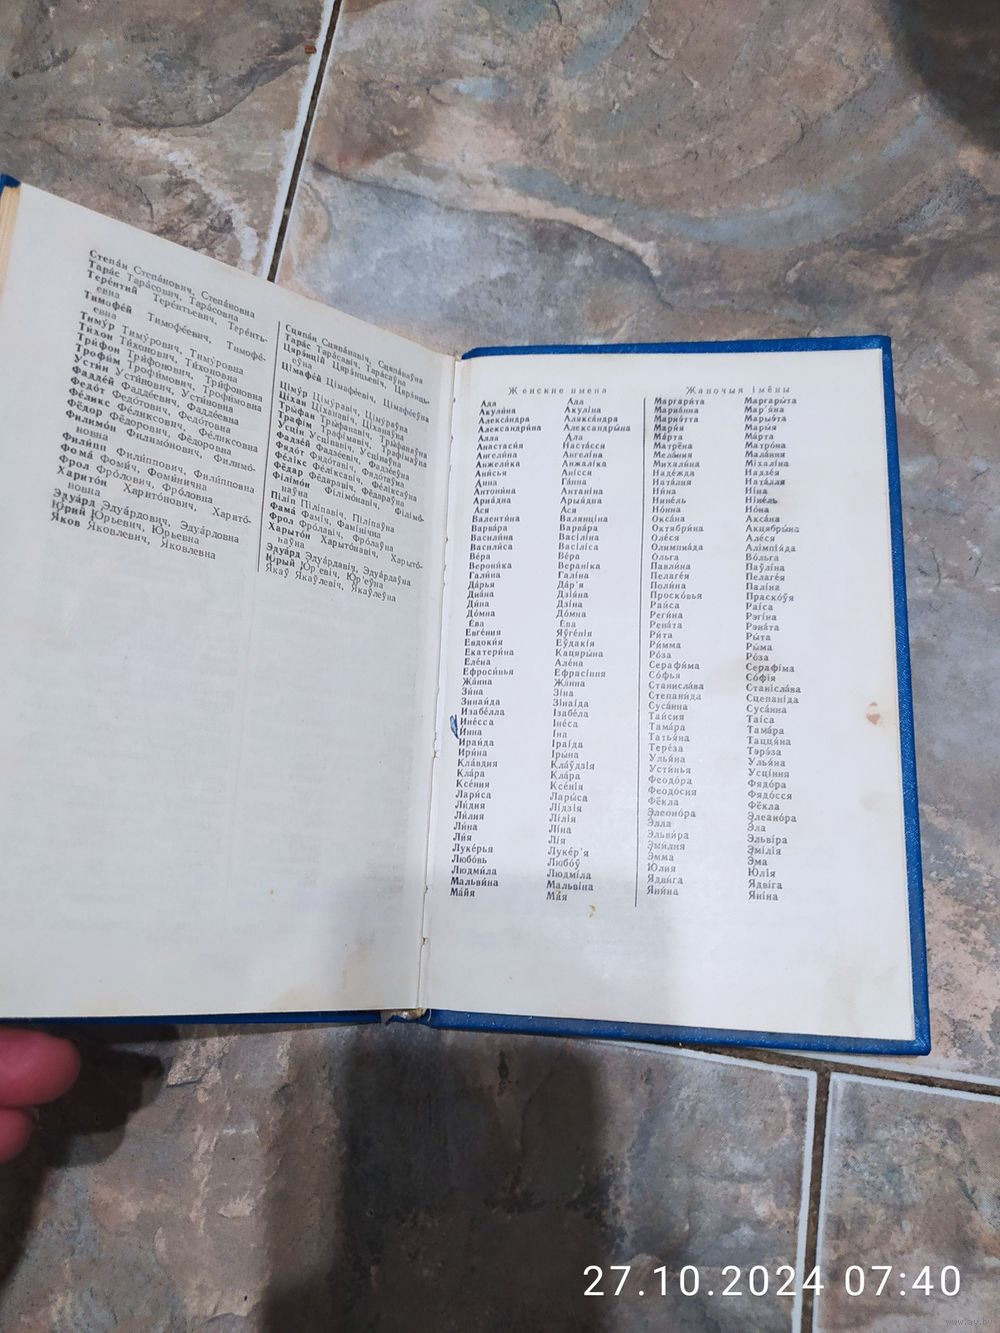 Степа́н Степа́нович, Степа́новна
Тара́с Тара́сович, Тара́совна
Тере́нтий Тере́нтьевич, Тере́нть-
евна
Тимофе́й Тимофе́евич, Тимофе́-
евна
Тиму́р Тиму́рович, Тиму́ровна
Ти́хон Ти́хонович, Ти́хоновна
Три́фон Три́фонович, Три́фоновна
Трофи́м Трофи́мович, Трофи́мовна
Усти́н Усти́нович, Усти́новна
Фадде́й Фадде́евич, Фадде́евна
Федо́т Федо́тович, Федо́товна
Фе́ликс Фе́ликсович, Фе́ликсовна
Фёдор Фёдорович, Фёдоровна
Филимо́н Филимо́нович, Филимо́-
новна
Фили́пп Фили́ппович, Фили́пповна
Фома́ Фоми́ч, Фоми́нична
Фрол Фро́лович, Фро́ловна
Харито́н Харито́нович, Харито́-
новна
Эдуа́рд Эдуа́рдович, Эдуа́рдовна
Ю́рий Ю́рьевич, Ю́рьевна
Я́ков Я́ковлевич, Я́ковлевна
Сцяпа́н Сцяпа́навіч, Сцяпа́наўна
Тара́с Тара́савіч, Тара́саўна
Цярэ́нцій Цярэ́нцьевіч, Цярэ́нць-
еўна
Цімафе́й Цімафе́евіч, Цімафе́еўна
Ціму́р Ціму́равіч, Ціму́раўна
Ці́хан Ці́ханавіч, Ці́ханаўна
Тры́фан Тры́фанавіч, Тры́фанаўна
Трафі́м Трафі́мавіч, Трафі́маўна
Усці́н Усці́навіч, Усці́наўна
Фадзе́й Фадзе́евіч, Фадзе́еўна
Фядо́т Фядо́тавіч, Фядо́таўна
Фе́лікс Фе́ліксавіч, Фе́ліксаўна
Фёдар Фёдаравіч, Фёдараўна
Філімо́н Філімо́навіч, Філімо́-
наўна
Піліп Піліпавіч, Піліпаўна
Фама́ Фамі́ч, Фамі́нічна
Фрол Фро́лавіч, Фро́лаўна
Харыто́н Харыто́навіч, Харыто́-
наўна
Эдуа́рд Эдуа́рдавіч, Эдуа́рдаўна
Ю́рый Ю́р'евіч, Ю́р'еўна
Я́каў Я́каўлевіч, Я́каўлеўна
Женские имена Жаночыя імёны
А́да А́да
Акули́на Акулі́на
Алекса́ндра Алякса́ндра
Александри́на Александры́на
А́лла А́ла
Анастаси́я Настасся
Ангели́на Ангелі́на
Анжели́ка Анжалі́ка
Ани́сья Ані́сся
А́нна Га́нна
Антони́на Антані́на
Ариа́дна Арыя́дна
А́ся А́ся
Валенти́на Валянці́на
Варва́ра Варва́ра
Васили́на Васілі́на
Васили́са Васілі́са
Ве́ра Ве́ра
Верони́ка Верані́ка
Гали́на Галі́на
Да́рья Да́р'я
Диа́на Дзія́на
Ди́на Дзі́на
До́мна До́мна
Е́ва Е́ва
Евге́ния Яўге́нія
Евдоки́я Еўдакі́я
Екатери́на Кацяры́на
Еле́на Але́на
Ефроси́нья Ефрасі́ння
Жа́нна Жа́нна
Зи́на Зі́на
Зинаи́да Зінаі́да
Изабе́лла Ізабе́ла
Ине́сса Іне́са
И́нна І́на
Ираи́да Іраі́да
Ири́на Іры́на
Кла́вдия Кла́ўдзія
Кла́ра Кла́ра
Ксе́ния Ксе́нія
Лари́са Лары́са
Ли́дия Лі́дзія
Ли́лия Лі́лія
Ли́на Лі́на
Ли́я Лі́я
Луке́рья Луке́р'я
Любо́вь Любо́ў
Людми́ла Людмі́ла
Мальви́на Мальві́на
Ма́йя Ма́я
Маргари́та Маргары́та
Мариа́нна Мар'я́на
Марие́тта Марыэ́та
Мари́я Мары́я
Ма́рта Ма́рта
Матрёна Матро́на
Мела́ния Мала́ння
Михали́на Міхалі́на
Наде́жда Надзе́я
Ната́лия Ната́лля
Ни́на Ні́на
Нине́ль Ніне́ль
Но́нна Но́на
Окса́на Акса́на
Октябри́на Акцябры́на
Оле́ся Але́ся
Олимпиа́да Алімпія́да
О́льга Во́льга
Павли́на Паўлі́на
Пелаге́я Пелаге́я
Поли́на Палі́на
Проско́вья Праско́ўя
Раи́са Раі́са
Реги́на Рэгі́на
Рена́та Рэна́та
Ри́та Ры́та
Ри́мма Ры́ма
Ро́за Ро́за
Серафи́ма Серафі́ма
Со́фья Со́фія
Станисла́ва Станісла́ва
Степани́да Сцепані́да
Суса́нна Суса́нна
Таи́сия Таі́са
Тама́ра Тама́ра
Татья́на Таццяна
Тере́за Тэрэ́за
Улья́на Улья́на
Усти́нья Усці́ння
Феодо́ра Фядо́ра
Феодо́сия Фядо́сся
Фёкла Фёкла
Элеоно́ра Элеано́ра
Э́лла Э́ла
Эльви́ра Эльві́ра
Эми́лия Эмі́лія
Э́мма Э́ма
Ю́лия Ю́лія
Ядви́га Ядві́га
Яни́на Яні́на
27.10.2024 07:40
www.ay.by